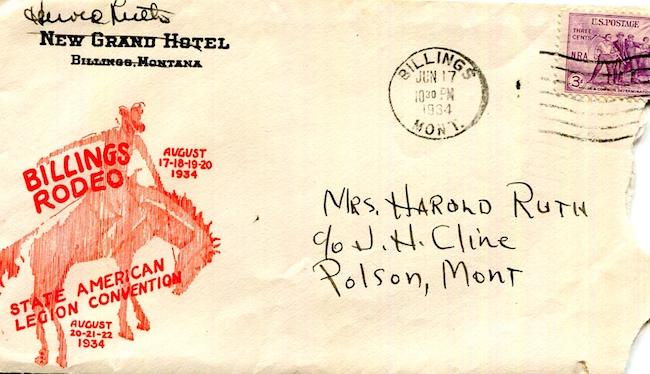 Ruth
NEW GRAND HOTEL
BILLINGS, MONTANA
BILLINGS
RODEO
AUGUST
17-18-19-20
1934
STATE AMERICAN
LEGION CONVENTION
AUGUST
20-21-22
1934
BILLINGS
JUN 17
10 30 PM
1934
MONT.
U.S. POSTAGE
THREE
CENTS
NRA
3¢
IN A COMMON DETERMINATION
MRS. HAROLD RUTH
c/o J. H. Cline
Polson, Mont